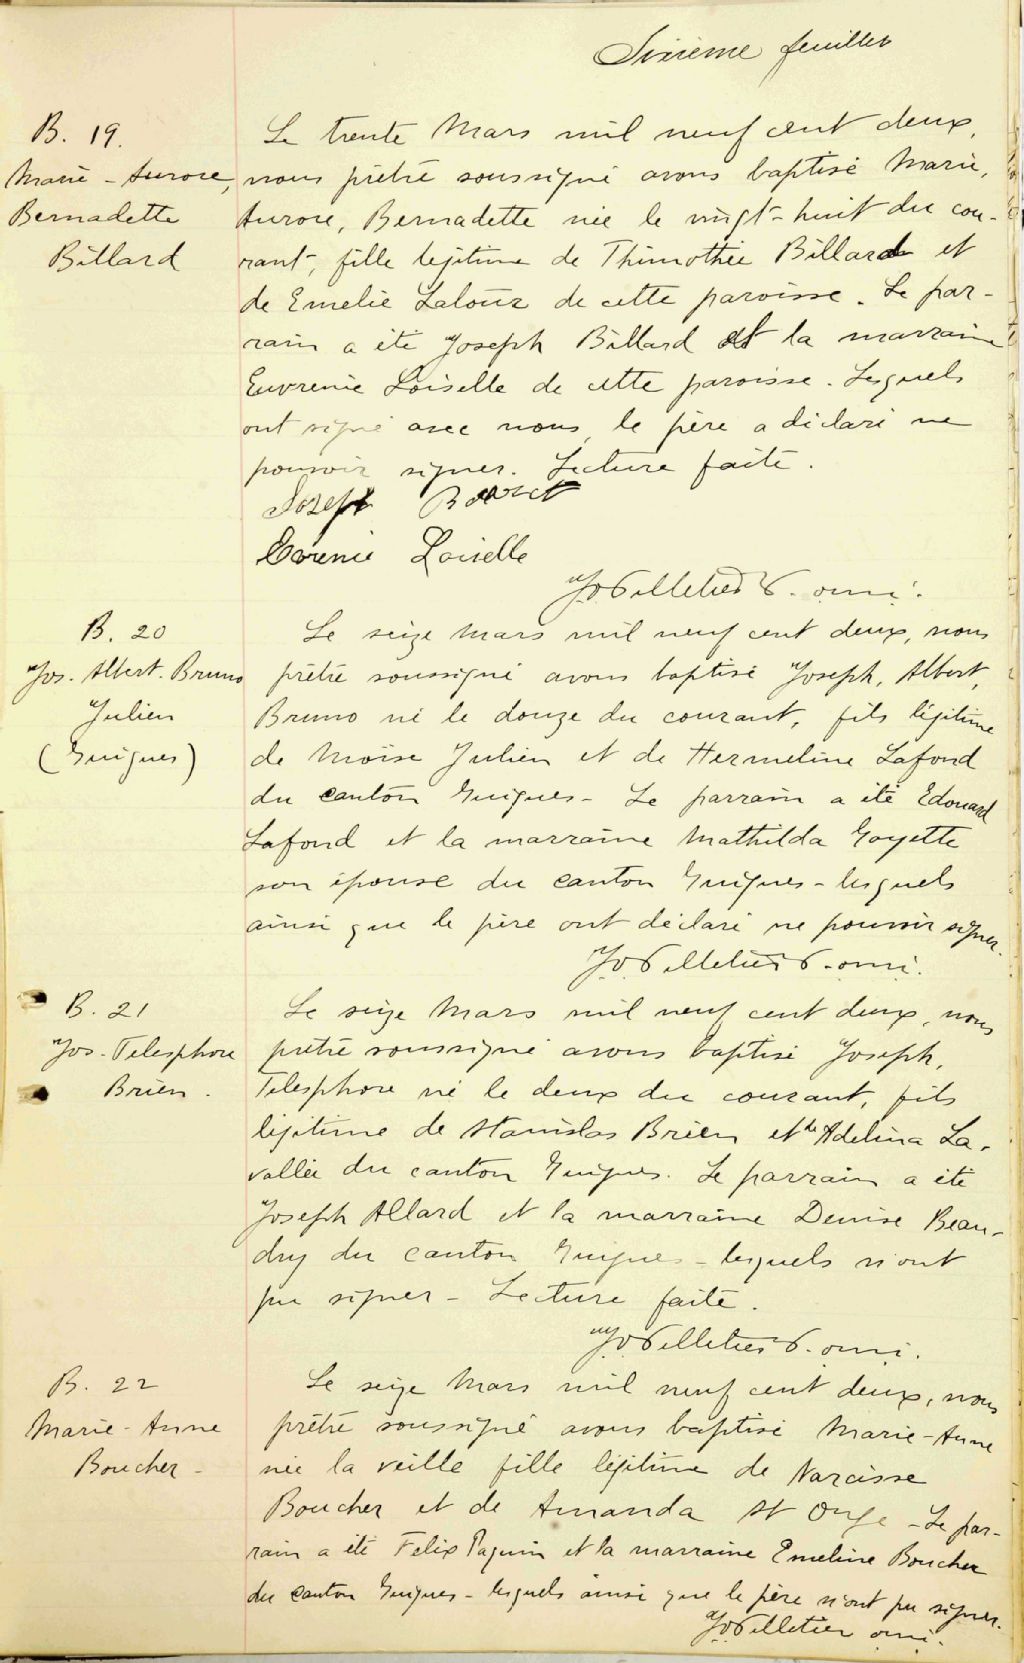 Sixième feuillet
B. 19.
Marie-Aurore,
Bernadette
Billard
Le trente Mars mil neuf cent deux,
nous prêtre soussigné avons baptisé Marie,
Aurore, Bernadette née le vingt-huit du cou-
rant, fille légitime de Thimothée Billard et
de Emelie Latour de cette paroisse. Le par-
rain a été Joseph Billard et la marraine
Euvrenie Loiselle de cette paroisse. Lesquels
ont signé avec nous, le père a déclaré ne
pouvoir signer. Lecture faite.
Josept
Evrenie Loiselle
Pelletier P. omi.
B. 20
Jos. Albert. Bruno
Julien
(Guigues)
Le seize Mars mil neuf cent deux, nous
prêtre soussigné avons baptisé Joseph, Albert,
Bruno né le douze du courant, fils légitime
de Moïse Julien et de Hermeline Lafond
du canton Guigues - Le parrain a été Edouard
Lafond et la marraine Mathilda Goyette
son épouse du canton Guigues - lesquels
ainsi que le père ont déclaré ne pouvoir signer.
Pelletier P. omi.
B. 21
Jos-Telesphore
Brien.
Le seize Mars mil neuf cent deux, nous
prêtre soussigné avons baptisé Joseph,
Telesphore né le deux du courant, fils
légitime de Stanislas Brien et de Adelina La-
vallée du canton Guigues. Le parrain a été
Joseph Allard et la marraine Denise Beau-
dry du canton Guigues - lesquels n'ont
pu signer - Lecture faite.
Pelletier P. omi.
B. 22
Marie-Anne
Boucher -
Le seize Mars mil neuf cent deux, nous
prêtre soussigné avons baptisé Marie-Anne
née la veille fille légitime de Narcisse
Boucher et de Amanda St Onge - Le par-
rain a été Felix Paquin et la marraine Emeline Boucher
du canton Guigues - lesquels ainsi que le père n'ont pu signer.
Pelletier omi.